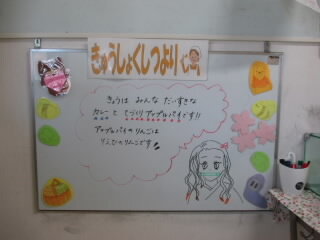 きゅうしょくしつより
きょうは みんな だいすきな
カレーと てづくりアップルパイです!!
アップルパイのりんごは
りえひのりんごです!!